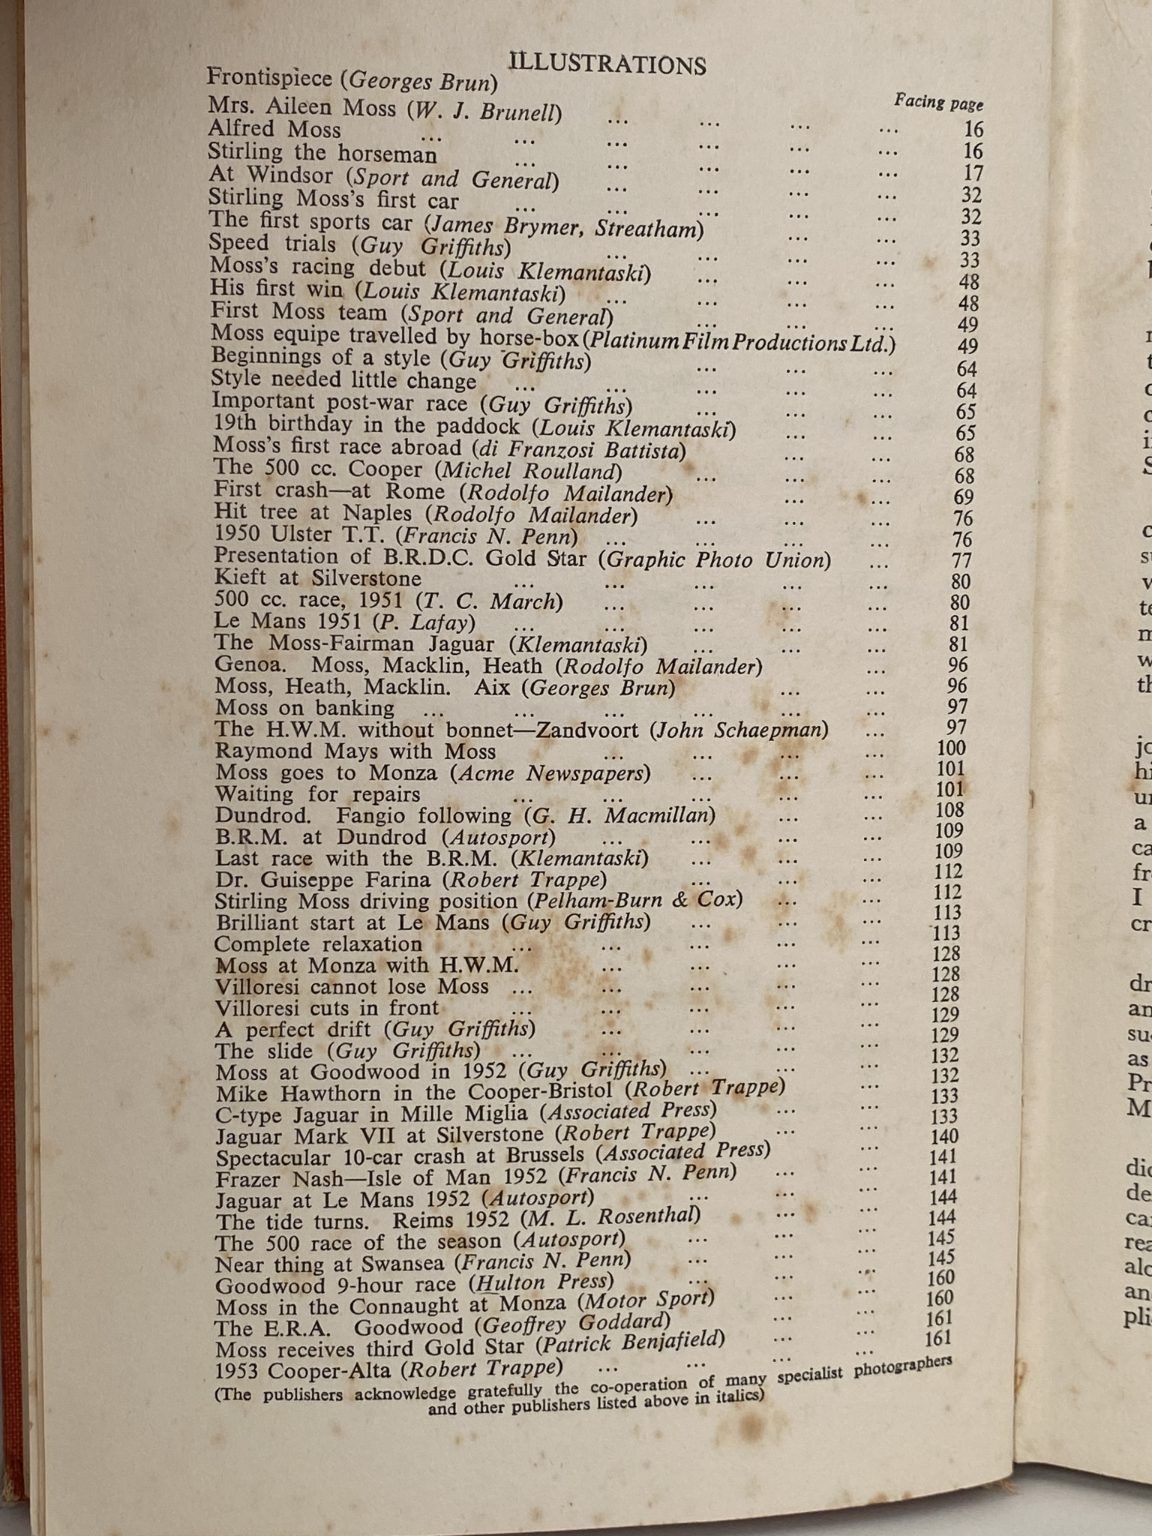 ILLUSTRATIONS
Frontispiece (Georges Brun)
Facing page
Mrs. Aileen Moss (W. J. Brunell) ... ... ... ... 16
Alfred Moss ... ... ... ... ... ... 16
Stirling the horseman ... ... ... ... ... 17
At Windsor (Sport and General) ... ... ... ... 32
Stirling Moss's first car ... ... ... ... ... 32
The first sports car (James Brymer, Streatham) ... ... 33
Speed trials (Guy Griffiths) ... ... ... ... 33
Moss's racing debut (Louis Klemantaski) ... ... ... 48
His first win (Louis Klemantaski) ... ... ... ... 48
First Moss team (Sport and General) ... ... ... 49
Moss equipe travelled by horse-box (Platinum Film Productions Ltd.) 49
Beginnings of a style (Guy Griffiths) ... ... ... 64
Style needed little change ... ... ... ... ... 64
Important post-war race (Guy Griffiths) ... ... ... 65
19th birthday in the paddock (Louis Klemantaski) ... ... 65
Moss's first race abroad (di Franzosi Battista) ... ... 68
The 500 cc. Cooper (Michel Roulland) ... ... ... 68
First crash—at Rome (Rodolfo Mailander) ... ... 69
Hit tree at Naples (Rodolfo Mailander) ... ... ... 76
1950 Ulster T.T. (Francis N. Penn) ... ... ... ... 76
Presentation of B.R.D.C. Gold Star (Graphic Photo Union) ... 77
Kieft at Silverstone ... ... ... ... ... 80
500 cc. race, 1951 (T. C. March) ... ... ... ... 80
Le Mans 1951 (P. Lafay) ... ... ... ... ... 81
The Moss-Fairman Jaguar (Klemantaski) ... ... ... 81
Genoa. Moss, Macklin, Heath (Rodolfo Mailander) ... 96
Moss, Heath, Macklin. Aix (Georges Brun) ... ... 96
Moss on banking ... ... ... ... ... ... 97
The H.W.M. without bonnet—Zandvoort (John Schaepman) ... 97
Raymond Mays with Moss ... ... ... ... 100
Moss goes to Monza (Acme Newspapers) ... ... ... 101
Waiting for repairs ... ... ... ... ... 101
Dundrod. Fangio following (G. H. Macmillan) ... ... 108
B.R.M. at Dundrod (Autosport) ... ... ... ... 109
Last race with the B.R.M. (Klemantaski) ... ... ... 109
Dr. Guiseppe Farina (Robert Trappe) ... ... ... 112
Stirling Moss driving position (Pelham-Burn & Cox) ... ... 112
Brilliant start at Le Mans (Guy Griffiths) ... ... ... 113
Complete relaxation ... ... ... ... ... 113
Moss at Monza with H.W.M. ... ... ... ... 128
Villoresi cannot lose Moss ... ... ... ... ... 128
Villoresi cuts in front ... ... ... ... ... 128
A perfect drift (Guy Griffiths) ... ... ... ... 129
The slide (Guy Griffiths) ... ... ... ... ... 129
Moss at Goodwood in 1952 (Guy Griffiths) ... ... ... 132
Mike Hawthorn in the Cooper-Bristol (Robert Trappe) ... 132
C-type Jaguar in Mille Miglia (Associated Press) ... ... 133
Jaguar Mark VII at Silverstone (Robert Trappe) ... ... 133
Spectacular 10-car crash at Brussels (Associated Press) ... 140
Frazer Nash—Isle of Man 1952 (Francis N. Penn) ... ... 141
Jaguar at Le Mans 1952 (Autosport) ... ... ... 141
The tide turns. Reims 1952 (M. L. Rosenthal) ... ... 144
The 500 race of the season (Autosport) ... ... ... 144
Near thing at Swansea (Francis N. Penn) ... ... ... 145
Goodwood 9-hour race (Hulton Press) ... ... ... 145
Moss in the Connaught at Monza (Motor Sport) ... ... 160
The E.R.A. Goodwood (Geoffrey Goddard) ... ... 160
Moss receives third Gold Star (Patrick Benjafield) ... ... 161
1953 Cooper-Alta (Robert Trappe) ... ... ... ... 161
(The publishers acknowledge gratefully the co-operation of many specialist photographers
and other publishers listed above in italics)